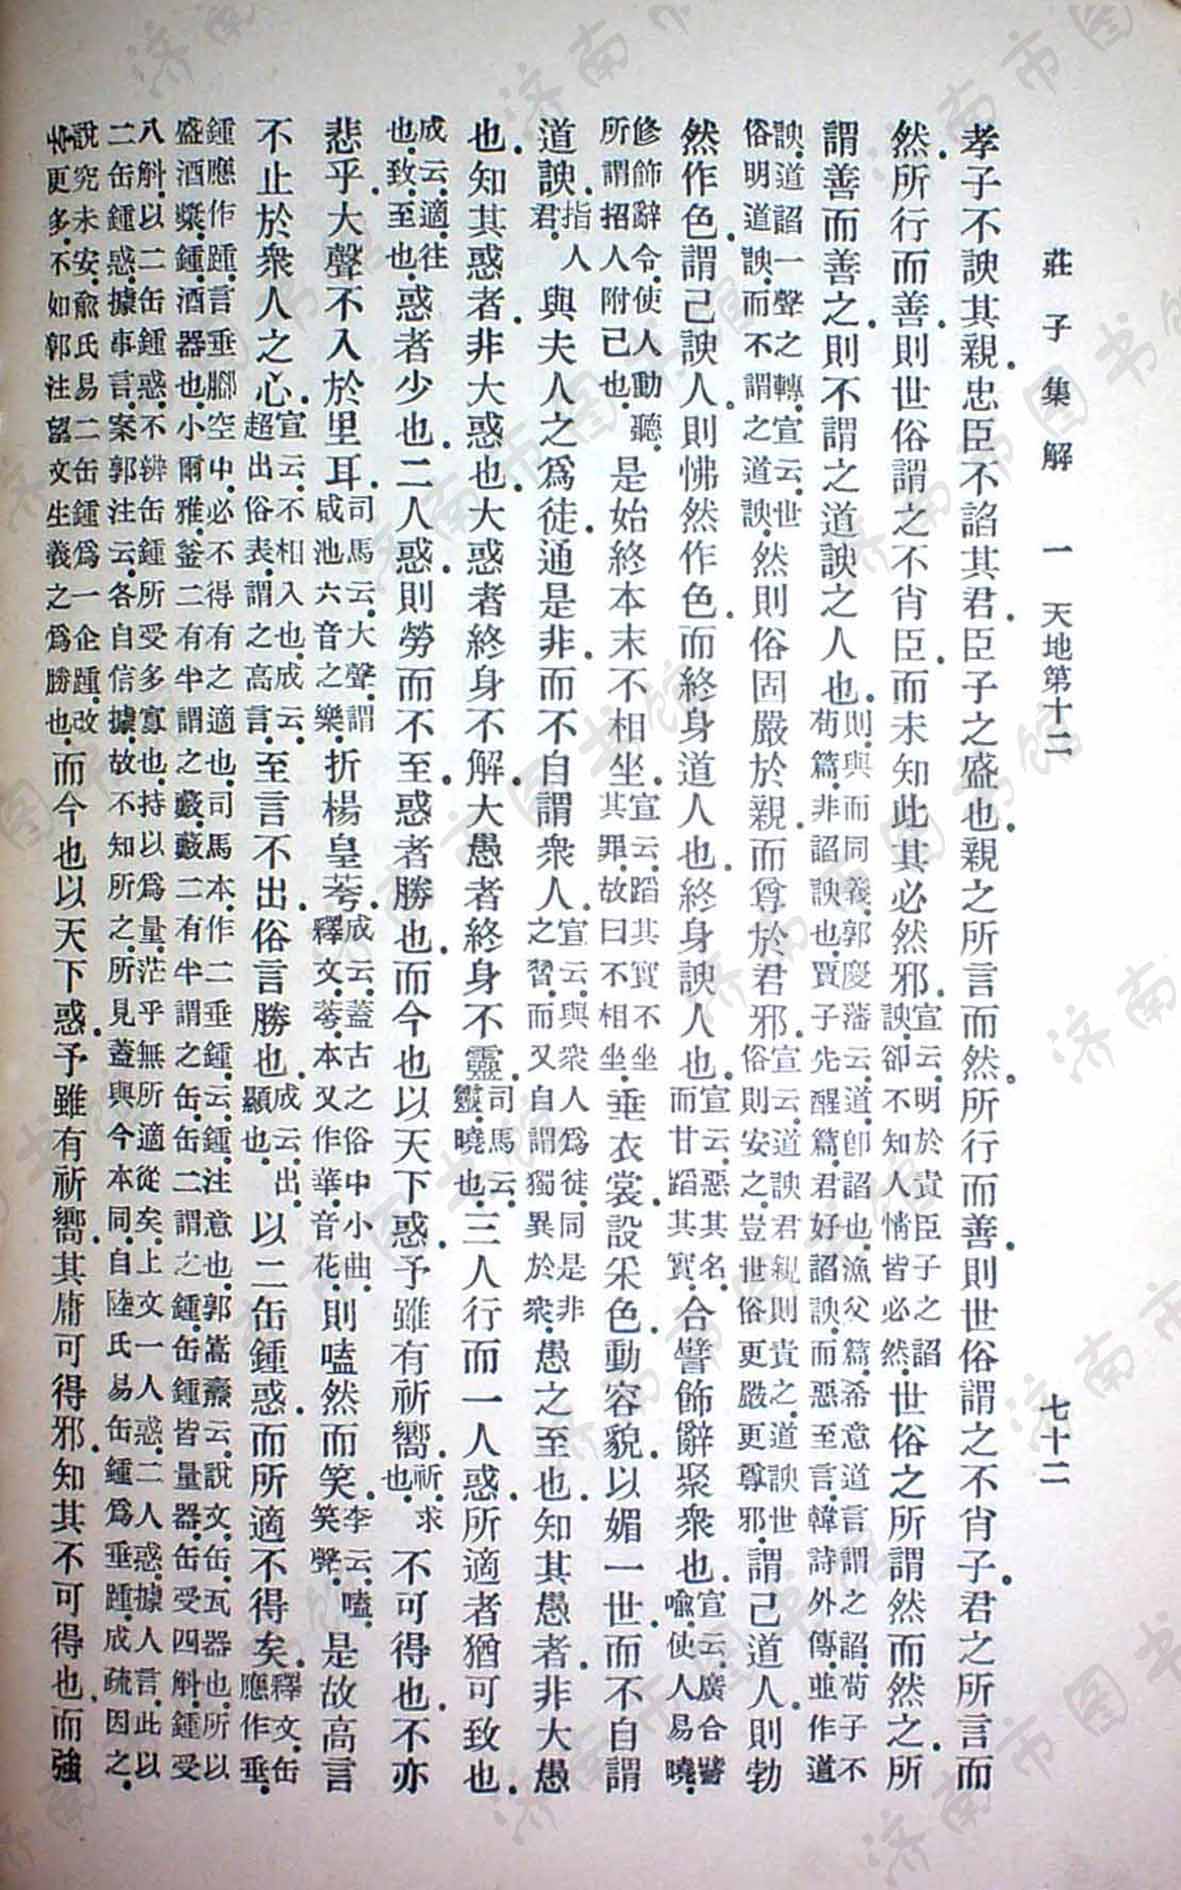 莊子集解 一 天地第十二 七十二
孝子不諛其親。忠臣不諂其君。臣子之盛也。親之所言而然。所行而善。則世俗謂之不肖子。君之所言而
然。所行而善。則世俗謂之不肖臣。而未知此其必然邪。宣云。明於貴臣子之諂諛。卻不知人情皆必然。世俗之所謂然而然之。所
謂善而善之。則不謂之道諛之人也。則。與而同義。郭慶藩云。道。卽諂也。漁父篇。希意道言謂之諂。荀子不苟篇。非諂諛也。賈子先醒篇。君好諂諛。而惡至言。韓詩外傳。並作道
諛。道諂一聲之轉。宣云。世俗明道諛。而不謂之道諛。然則俗固嚴於親。而尊於君邪。宣云。道諛君親則貴之。道諛世俗則安之。豈世俗更嚴更尊邪。謂己道人。則勃
然作色。謂己諛人。則怫然作色。而終身道人也。終身諛人也。宣云。惡其名。而甘蹈其實。合譬飾辭聚衆也。宣云。廣合譬喩。使人易曉。
修飾辭令。使人動聽。所謂招人附己也。是始終本末不相坐。宣云。蹈其實不坐其罪。故曰不相坐。垂衣裳。設采色。動容貌。以媚一世。而不自謂
道諛。指人君。與夫人之爲徒。通是非。而不自謂衆人。宣云。與衆人爲徒。同是非之習。而又自謂獨異於衆。愚之至也。知其愚者。非大愚
也。知其惑者。非大惑也。大惑者。終身不解。大愚者。終身不靈。司馬云。靈。曉也。三人行而一人惑。所適者猶可致也。
成云。適。往也。致。至也。惑者少也。二人惑。則勞而不至。惑者勝也。而今也以天下惑。予雖有祈嚮。祈。求也。不可得也。不亦
悲乎。大聲不入於里耳。司馬云。大聲。謂咸池六音之樂。折楊皇荂。成云。蓋古之俗中小曲。釋文。荂。本又作華。音花。則嗑然而笑。李云。嗑。笑聲。是故高言
不止於衆人之心。宣云。不相入也。成云。超出俗表。謂之高言。至言不出。俗言勝也。成云。出。顯也。以二缶鍾惑。而所適不得矣。釋文。缶應作垂。
鍾應作踵。言垂腳空中。必不得有之適也。司馬本作二垂鍾。云。鍾。注意也。郭嵩燾云。說文。缶。瓦器也。所以盛酒漿。鍾。酒器也。小爾雅。釜二有半謂之藪。藪二有半謂之缶。缶二謂之鍾。缶鍾皆量器。缶受四斛。鍾受
八斛。以二缶鍾惑。不辨缶鍾所受多寡也。持以爲量。茫乎無所適從矣。上文一人惑。二人惑。據人言。此以二缶鍾惑。據事言。案郭注云。各自信據。故不知所之。所見蓋與今本同。自陸氏易缶鍾爲垂踵。成疏因之。
說究未安。俞氏易二缶鍾爲一企踵。改字更多。不如郭注望文生義之爲勝也。而今也以天下惑。予雖有祈嚮。其庸可得邪。知其不可得也。而強
济南市图书馆